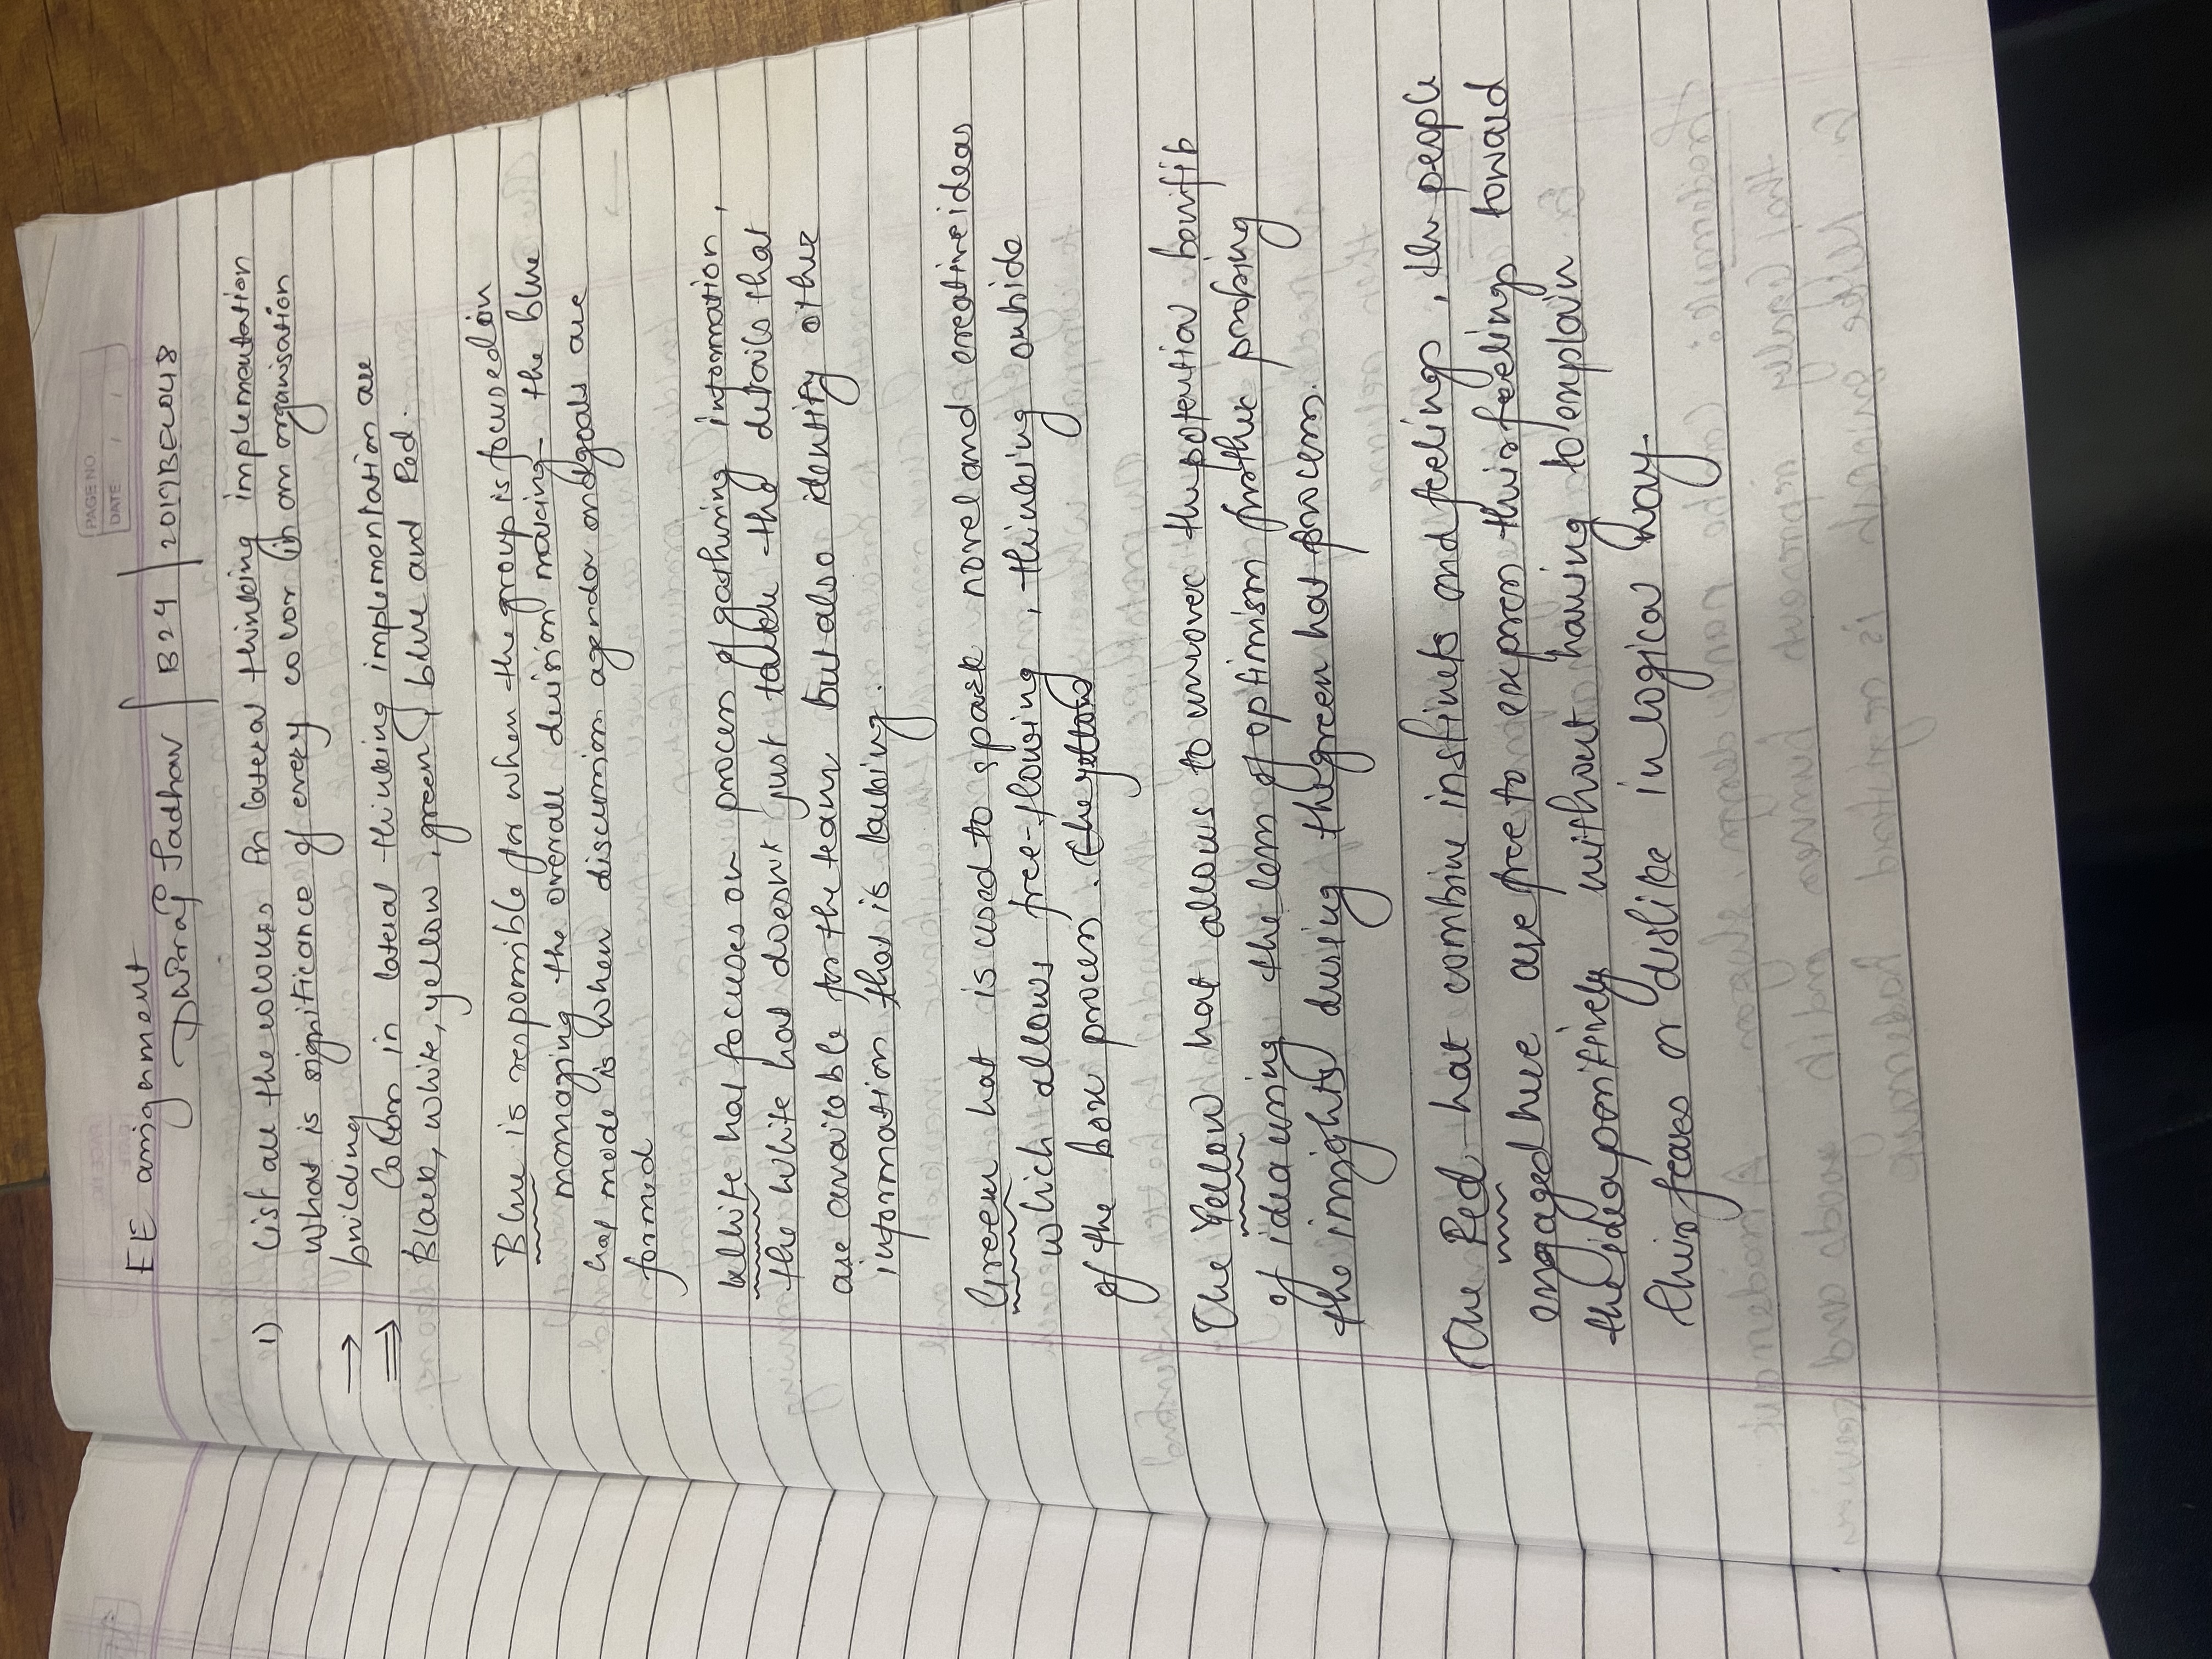 PAGE NO.
DATE: / /
EE assignment
Dhiraj Jadhav | B24 | 2019BEC048
1) List all the colours in lateral thinking implementation
What is significance of every color in an organisation
→ building
⇒ Colors in lateral thinking implementation are
Black, white, yellow, green, blue and Red.
Blue is responsible for when the group is focused on
managing the overall decision making the blue
hat mode is when discussion agenda and goals are
formed
White hat focuses on process of gathering information,
the white hat doesn't just take the details that
are available for the team but also identify other
information that is lacking.
Green hat is used to spark novel and creative ideas
which allows free-flowing, thinking outside
of the box process. the yellow
The Yellow hat allows to uncover the potential benifits
of idea using the lens of optimism further probing
the insights during the green hat process.
The Red hat combine instincts and feelings, the people
engaged here are free to express their feelings toward
the idea positively without having to explain
their fears or dislike in logical way.